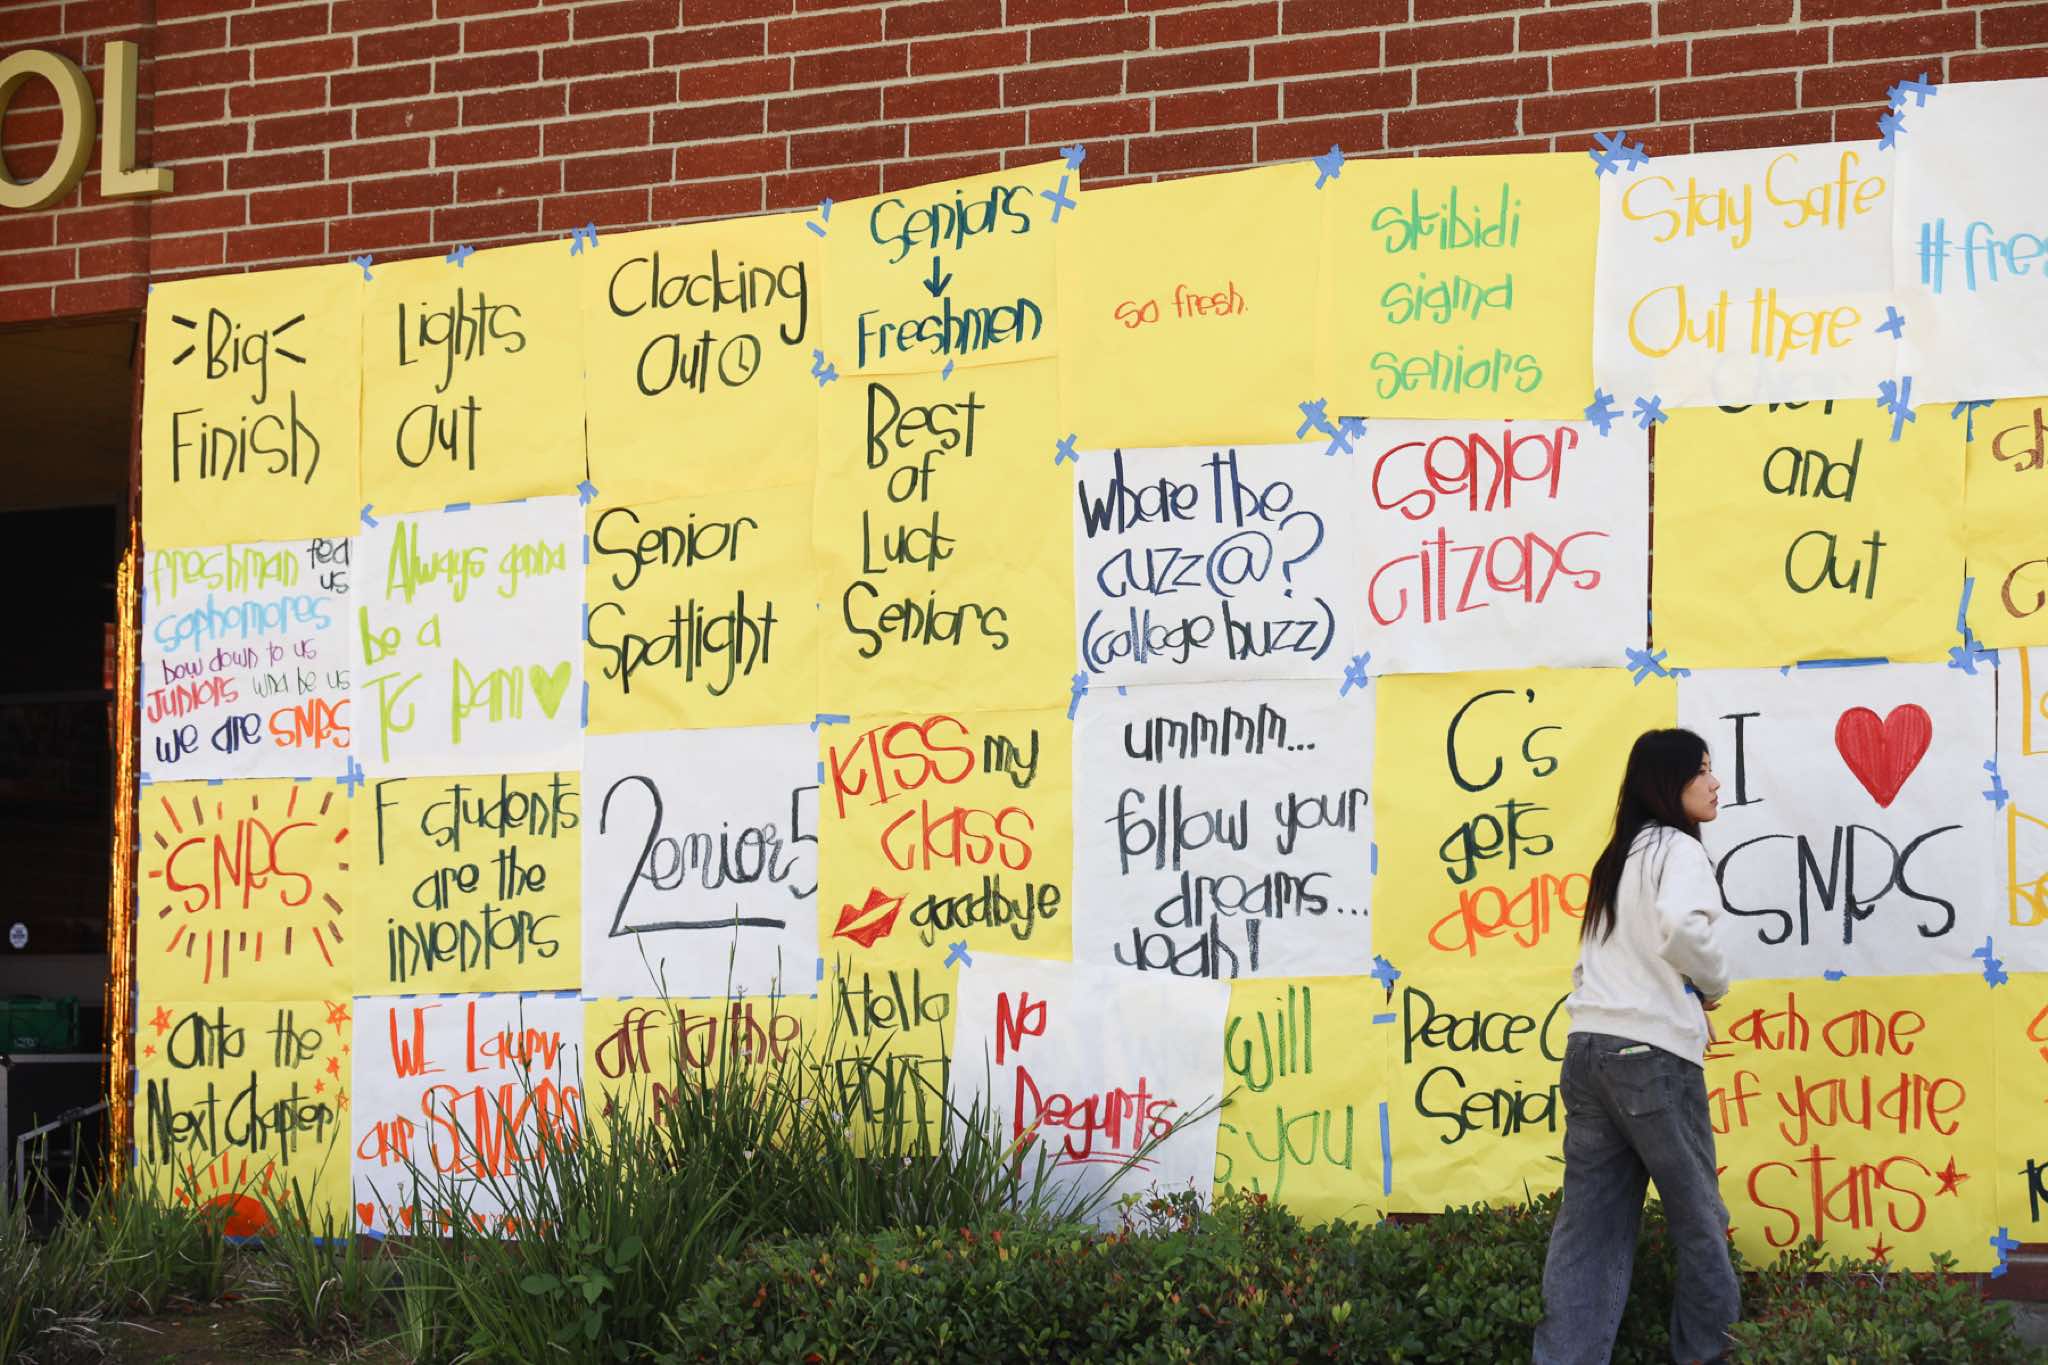 OL
Big
Finish
Lights
Out
Clocking
Out
Seniors
Freshmen
so fresh.
Skibidi
sigma
seniors
Stay Safe
Out there
#fres
freshman fed
us
sophomores
bow down to us
Juniors wna be us
we are SNRS
Always gonna
be a
TC Ram
Senior
Spotlight
Best
of
Luck
Seniors
where the
cuzz@?
(college buzz)
Senior
citzens
and
Out
SNRS
F students
are the
inventors
2enior5
KISS my
class
goodbye
ummmm...
follow your
dreams...
yeah!
C's
gets
degre
I
SNRS
Onto the
Next Chapter
WE Launv
our SENIORS
off to the
Hello
No
Regurts
will
you
Peace
Senior
Each one
of you are
stars